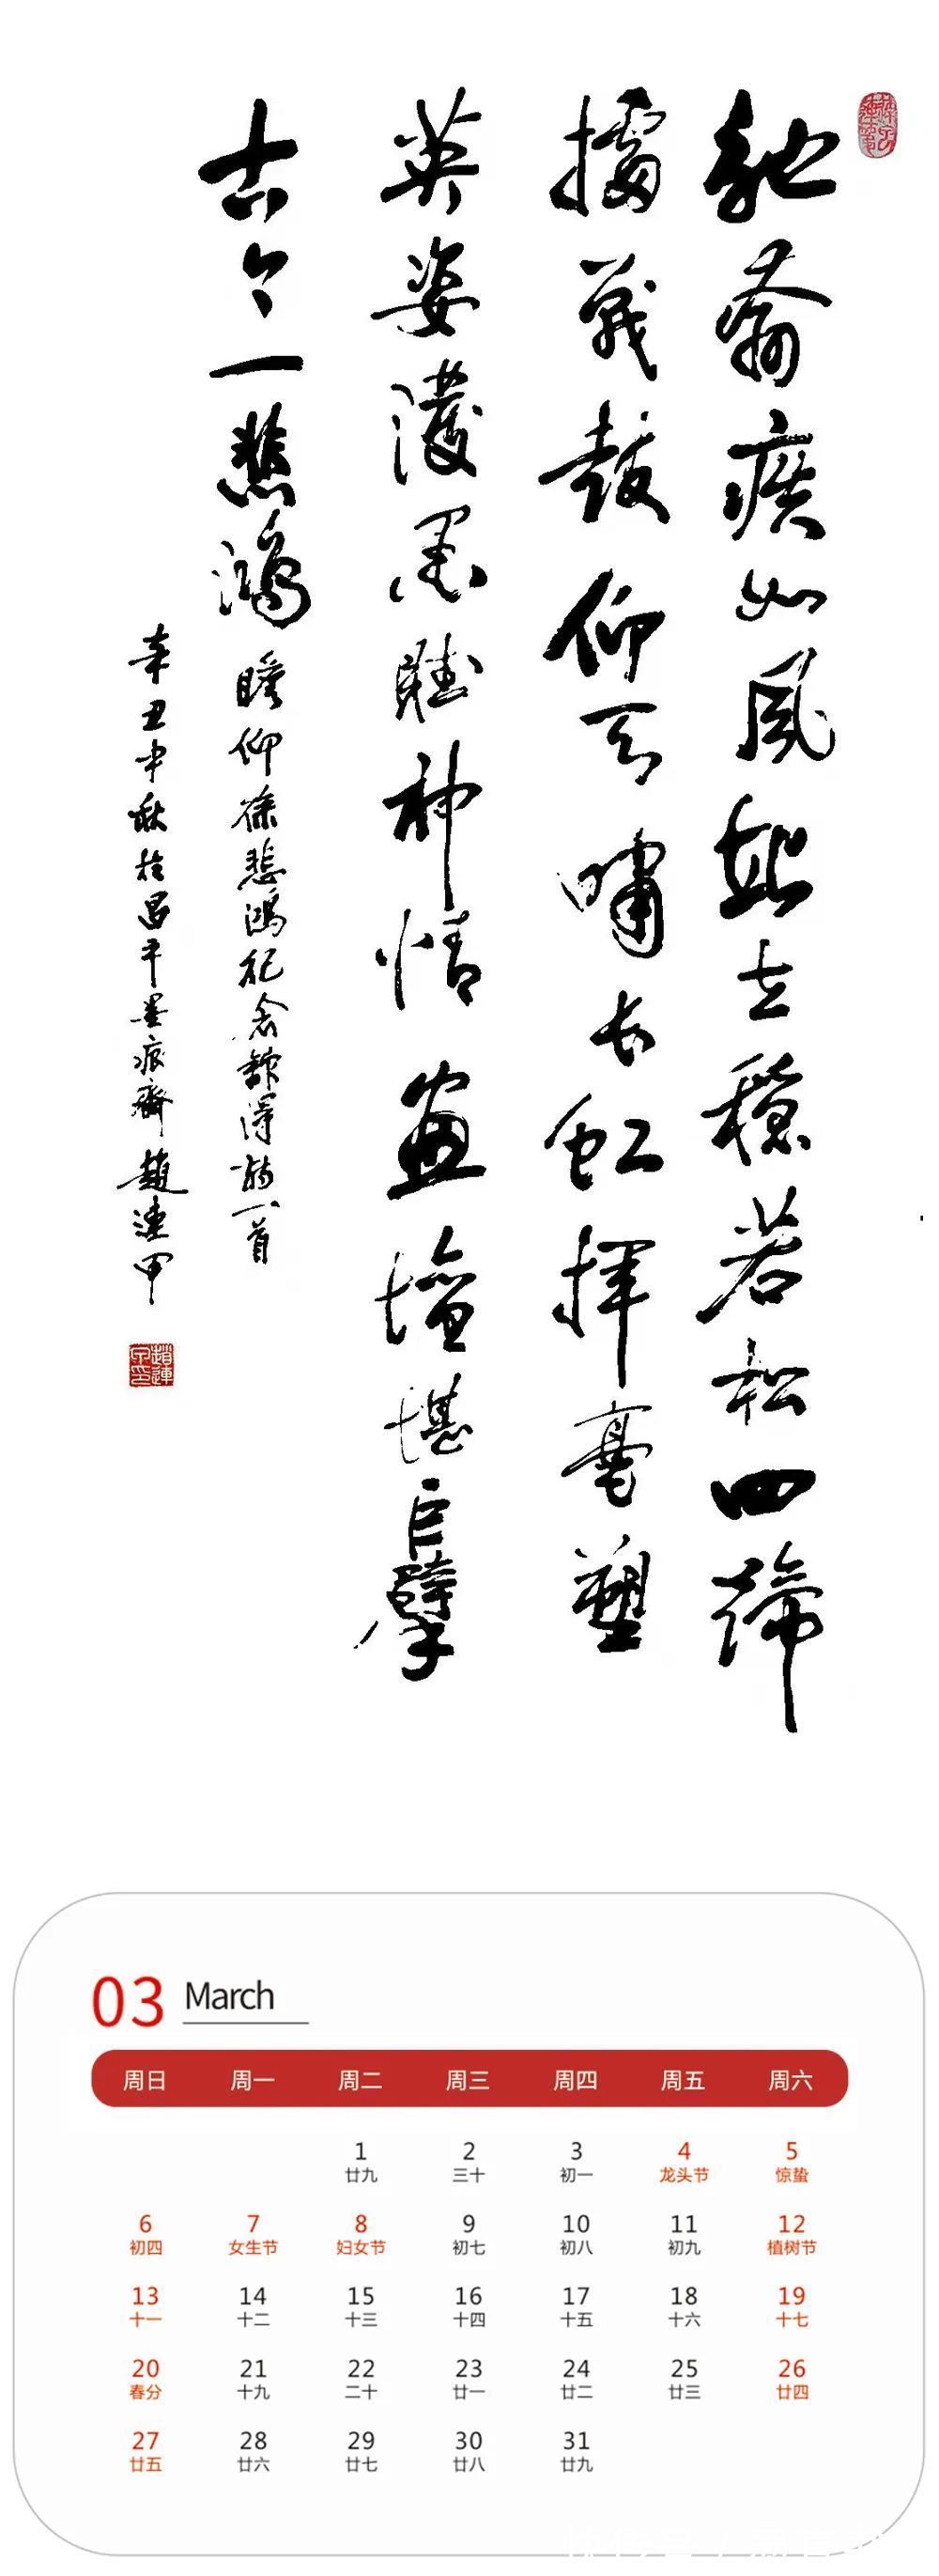 驰奔疾如风 站立稳若松 四蹄
擂战鼓 仰天啸长虹 挥毫塑
英姿 泼墨赋神情 画坛堪巨擘
古今一悲鸿 瞻仰徐悲鸿纪念馆得诗一首
辛丑中秋于昌平墨痕斋 赵连甲
03 March
周日 周一 周二 周三 周四 周五 周六
1 2 3 4 5
廿九 三十 初一 龙头节 惊蛰
6 7 8 9 10 11 12
初四 女生节 妇女节 初七 初八 初九 植树节
13 14 15 16 17 18 19
十一 十二 十三 十四 十五 十六 十七
20 21 22 23 24 25 26
春分 十九 二十 廿一 廿二 廿三 廿四
27 28 29 30 31
廿五 廿六 廿七 廿八 廿九